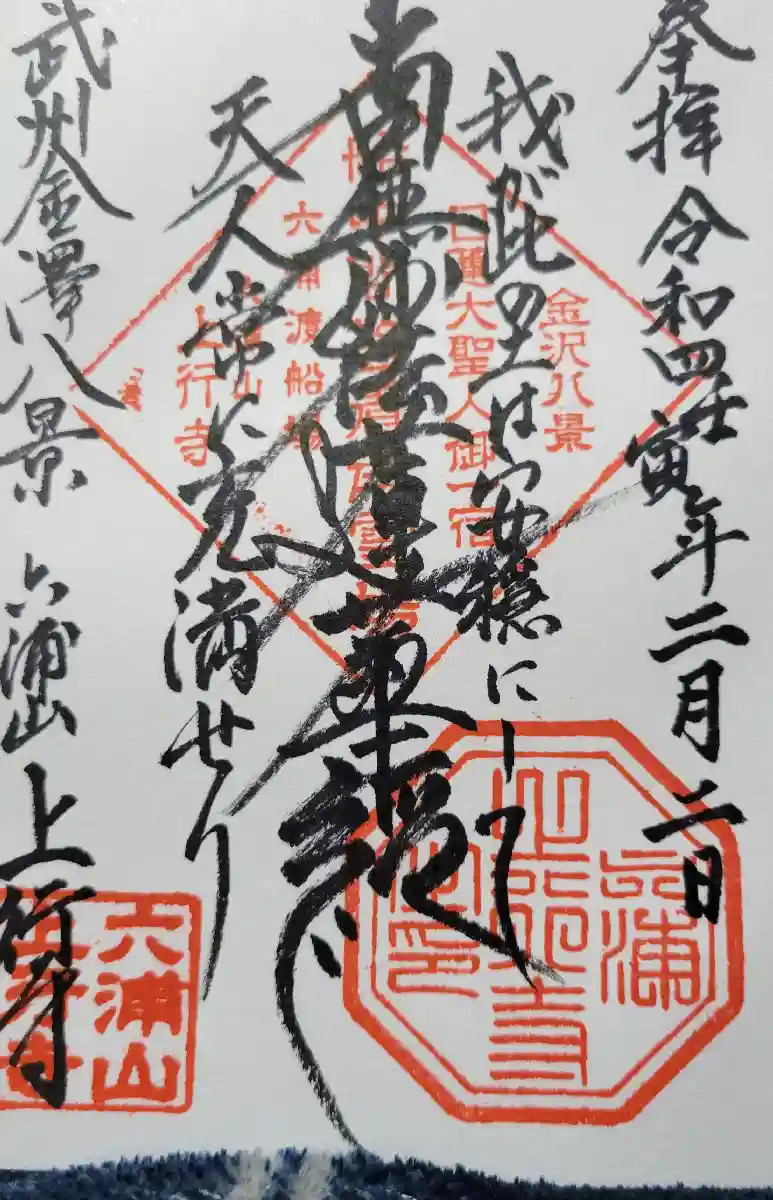 登拝 令和四壬寅年二月二日
我が此の里は安穏にして
南無妙法蓮華経
天人常に充満せり
武州金澤八景 六浦山 上行寺
金沢八景
日蓮大聖人御一宿
六浦渡船場
上行寺
六浦
上行寺
六浦山
上行寺